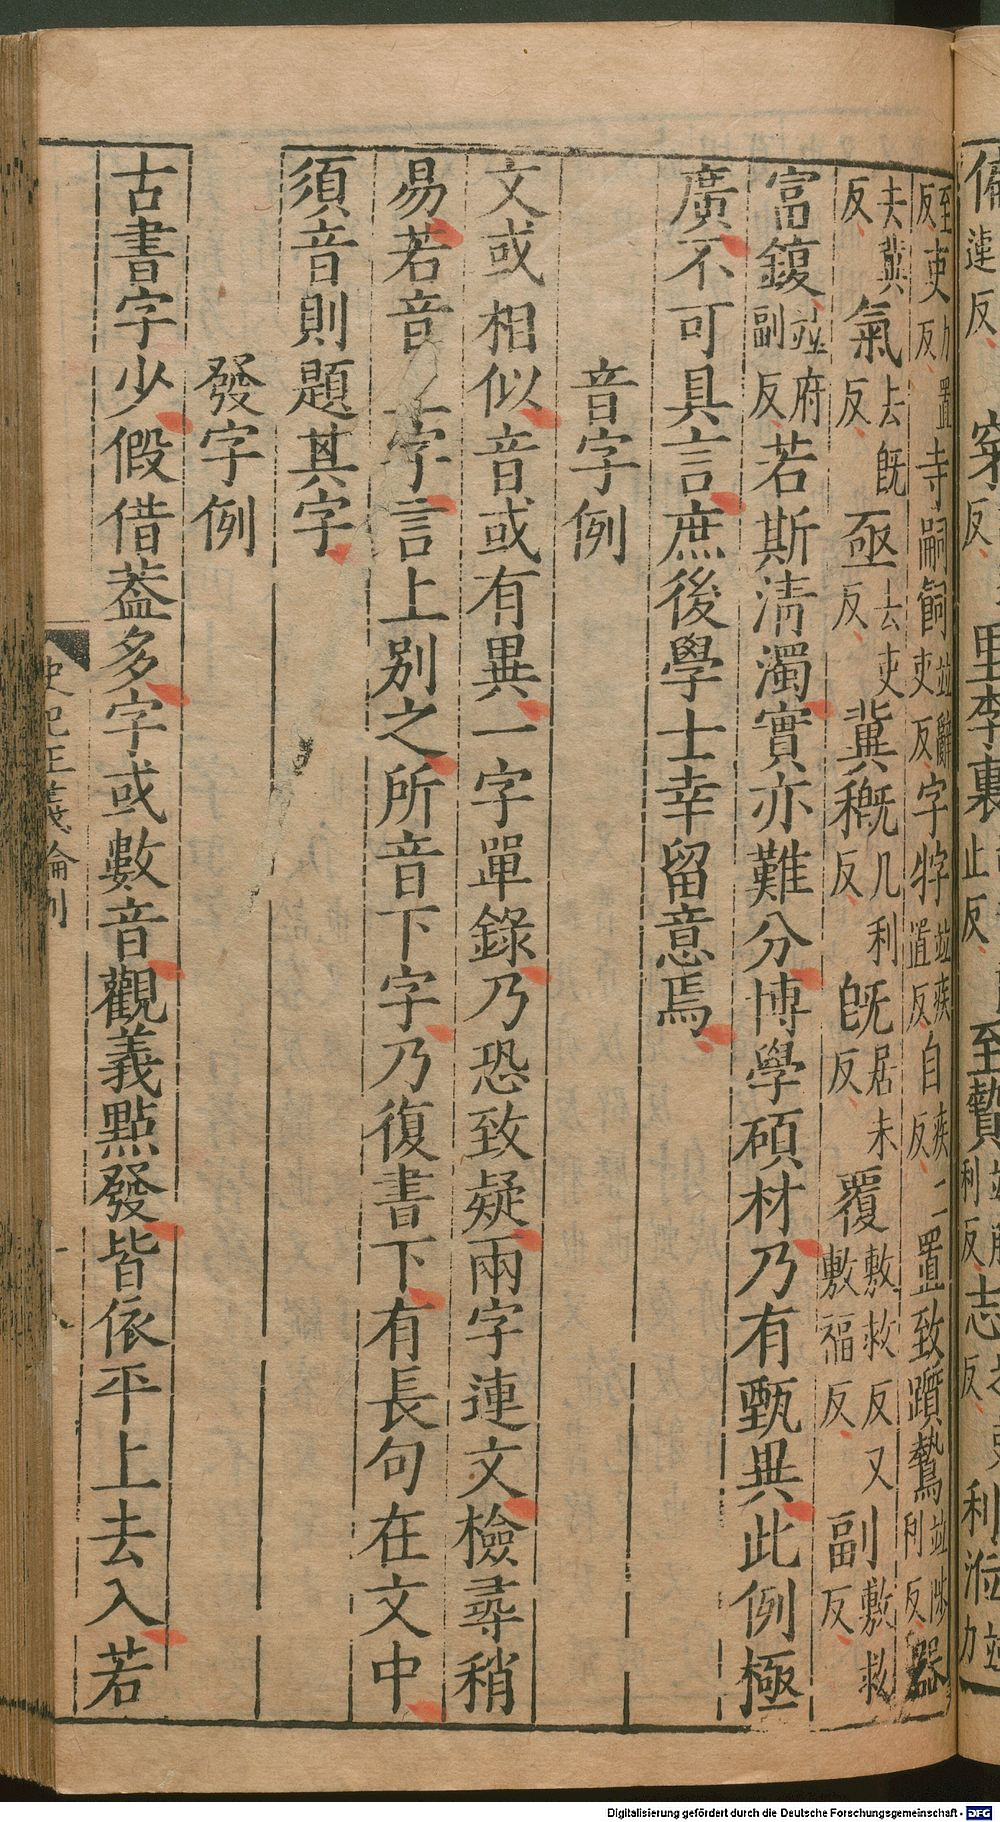 里李裏 止反 至贄 利反 志
至反吏力置反寺嗣飼並辭吏反字牸並疾置反自疾二反置致躓鷙並陟利反器
去冀反氣去旣反亟去吏反冀穊几利反旣居未反覆敷救反又敷福反副敷救反
富鍑並府副反若斯清濁實亦難分博學碩材乃有甄異此例極
廣不可具言庶後學士幸留意焉
音字例
文或相似音或有異一字單錄乃恐致疑兩字連文檢尋稍
易若音字言上別之所音下字乃復書下有長句在文中
須音則題其字
發字例
古書字少假借蓋多字或數音觀義點發皆依平上去入若
史記正義論例
Digitalisierung gefördert durch die Deutsche Forschungsgemeinschaft - DFG